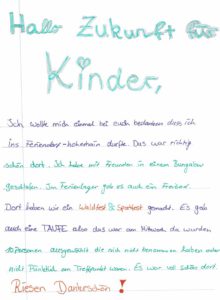 Hallo Zukunft für
Kinder,
Ich wollte mich einmal bei euch bedanken das ich
ins Feriendorf-hohenhain durfte. Das war richtig
schön dort. Ich habe mit Freunden in einem Bungalow
geschlafen. Im Ferienlager gab es auch ein Freibad.
Dort haben wir ein Waldfest & Sportfest gemacht. Es gab
auch eine TAUFE also das war am Mittwoch da wurden
10 Personen ausgewählt die sich nicht benommen haben oder
nicht Pünktlich am Treffpunkt waren. Es war voll schön dort.
Riesen Dankeschön!